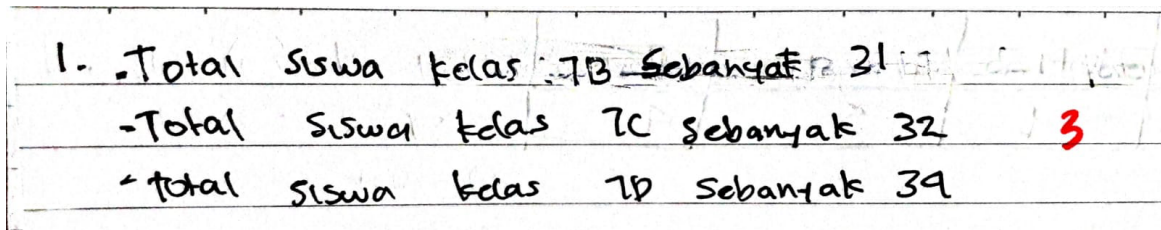 1. -Total siswa kelas 7B sebanyak 31
-Total siswa kelas 7C sebanyak 32 3
-total siswa kelas 7D sebanyak 34